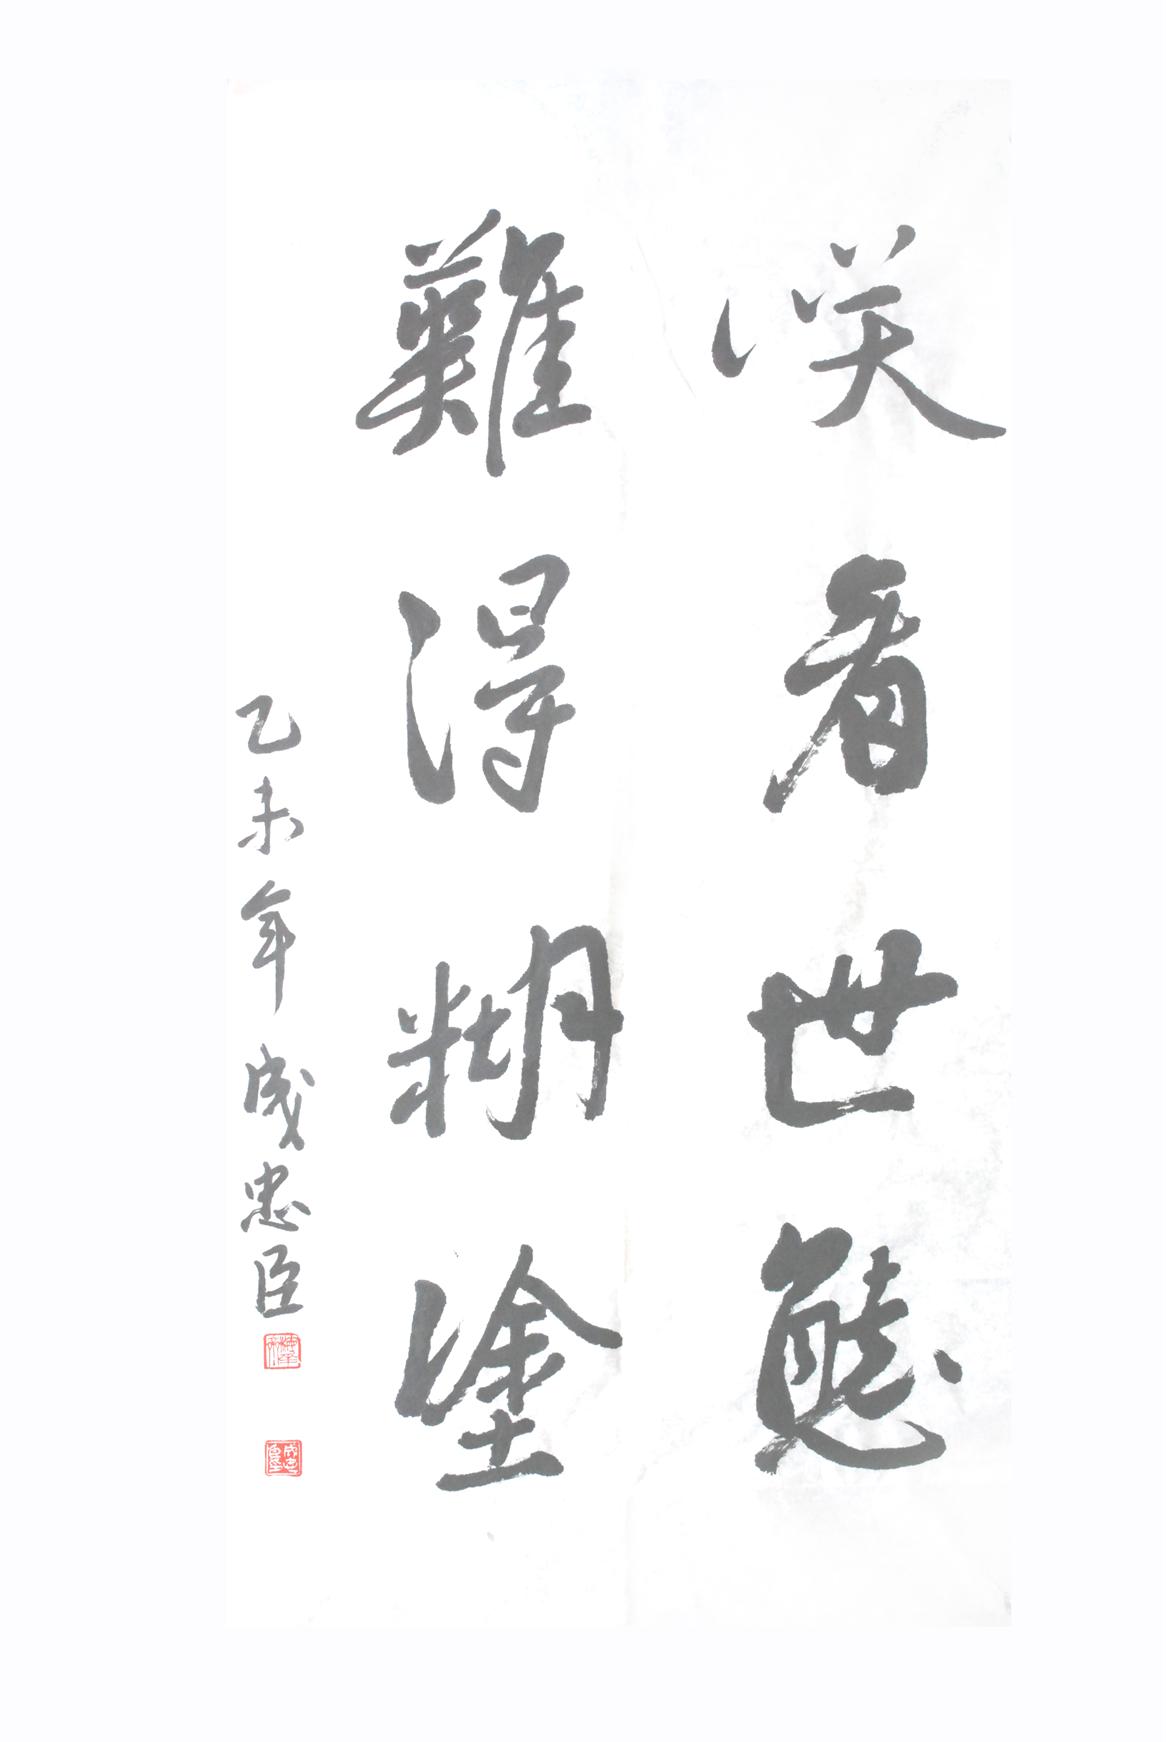 咲看世態
難得糊塗
乙未年成忠臣